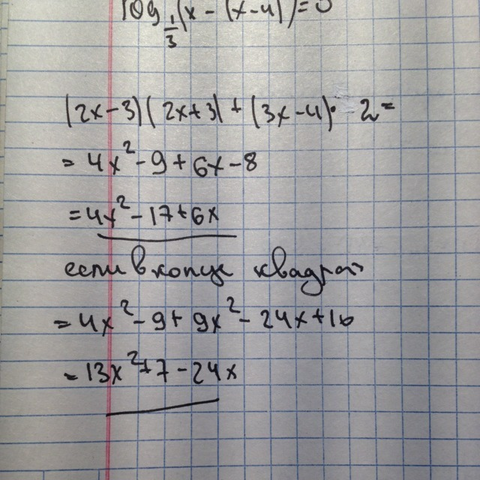 log 1/3 (x - (x-4)) = 0
(2x-3)(2x+3) + (3x-4)· 2 =
= 4x² - 9 + 6x - 8
= 4x² - 17 + 6x
если в конце квадрат
= 4x² - 9 + 9x² - 24x + 16
= 13x² + 7 - 24x